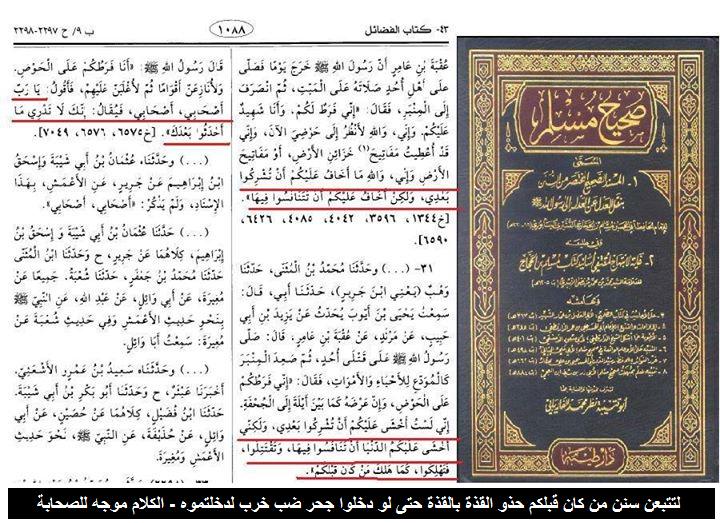 ٤٣- كتاب الفضائل
١٠٨٨
ب ٩/ ح ٢٢٩٧-٢٢٩٨
عُقْبَةَ بْنِ عَامِرٍ أَنَّ رَسُولَ اللهِ ﷺ خَرَجَ يَوْمًا فَصَلَّى
عَلَى أَهْلِ أُحُدٍ صَلَاتَهُ عَلَى الْمَيِّتِ، ثُمَّ انْصَرَفَ
إِلَى الْمِنْبَرِ، فَقَالَ: «إِنِّي فَرَطٌ لَكُمْ. وَأَنَا شَهِيدٌ
عَلَيْكُمْ. وَإِنِّي، وَاللهِ لَأَنْظُرُ إِلَى حَوْضِيَ الْآنَ. وَإِنِّي
قَدْ أُعْطِيتُ مَفَاتِيحَ(١) خَزَائِنِ الْأَرْضِ، أَوْ مَفَاتِيحَ
الْأَرْضِ وَإِنِّي، وَاللهِ مَا أَخَافُ عَلَيْكُمْ أَنْ تُشْرِكُوا
بَعْدِي، وَلَكِنْ أَخَافُ عَلَيْكُمْ أَنْ تَتَنَافَسُوا فِيهَا».
[خ١٣٤٤، ٣٥٩٦، ٤٠٤٢، ٤٠٨٥، ٦٤٢٦،
٦٥٩٠].
٣١- (...) وحَدَّثَنَا مُحَمَّدُ بْنُ الْمُثَنَّى، حَدَّثَنَا
وَهْبٌ (يَعْنِي ابْنَ جَرِيرٍ)، حَدَّثَنَا أَبِي، قَالَ:
سَمِعْتُ يَحْيَى بْنَ أَيُّوبَ يُحَدِّثُ عَنْ يَزِيدَ بْنِ أَبِي
حَبِيبٍ، عَنْ مَرْثَدٍ، عَنْ عُقْبَةَ بْنِ عَامِرٍ، قَالَ: صَلَّى
رَسُولُ اللهِ ﷺ عَلَى قَتْلَى أُحُدٍ، ثُمَّ صَعِدَ الْمِنْبَرَ
كَالْمُوَدِّعِ لِلْأَحْيَاءِ وَالْأَمْوَاتِ، فَقَالَ: «إِنِّي فَرَطُكُمْ
عَلَى الْحَوْضِ، وَإِنَّ عَرْضَهُ كَمَا بَيْنَ أَيْلَةَ إِلَى الْجُحْفَةِ.
إِنِّي لَسْتُ أَخْشَى عَلَيْكُمْ أَنْ تُشْرِكُوا بَعْدِي، وَلَكِنِّي
أَخْشَى عَلَيْكُمُ الدُّنْيَا أَنْ تَنَافَسُوا فِيهَا، وَتَقْتَتِلُوا،
فَتَهْلِكُوا، كَمَا هَلَكَ مَنْ كَانَ قَبْلَكُمْ».
قَالَ رَسُولُ اللهِ ﷺ: «أَنَا فَرَطُكُمْ عَلَى الْحَوْضِ.
وَلَأُنَازِعَنَّ أَقْوَامًا ثُمَّ لَأُغْلَبَنَّ عَلَيْهِمْ، فَأَقُولُ: يَا رَبِّ
أَصْحَابِي، أَصْحَابِي، فَيُقَالُ: إِنَّكَ لَا تَدْرِي مَا
أَحْدَثُوا بَعْدَكَ». [خ٦٥٧٥، ٦٥٧٦، ٧٠٤٩].
(...) وحَدَّثَنَاه عُثْمَانُ بْنُ أَبِي شَيْبَةَ وَإِسْحَقُ
ابْنُ إِبْرَاهِيمَ، عَنْ جَرِيرٍ، عَنِ الْأَعْمَشِ، بِهَذَا
الْإِسْنَادِ، وَلَمْ يَذْكُرْ: «أَصْحَابِي، أَصْحَابِي».
(...) حَدَّثَنَا عُثْمَانُ بْنُ أَبِي شَيْبَةَ وَ إِسْحَقُ بْنُ
إِبْرَاهِيمَ، كِلَاهُمَا عَنْ جَرِيرٍ، ح وَحَدَّثَنَا ابْنُ الْمُثَنَّى
حَدَّثَنَا مُحَمَّدُ بْنُ جَعْفَرٍ، حَدَّثَنَا شُعْبَةُ. جَمِيعًا عَنْ
مُغِيرَةَ، عَنْ أَبِي وَائِلٍ، عَنْ عَبْدِ اللهِ، عَنِ النَّبِيِّ ﷺ
بِنَحْوِ حَدِيثِ الْأَعْمَشِ وَفِي حَدِيثِ شُعْبَةَ عَنْ
مُغِيرَةَ: سَمِعْتُ أَبَا وَائِلٍ.
(...) وحَدَّثَنَاه سَعِيدُ بْنُ عَمْرٍو الْأَشْعَثِيُّ،
أَخْبَرَنَا عَبْثَرٌ، ح وَحَدَّثَنَا أَبُو بَكْرِ بْنُ أَبِي شَيْبَةَ.
حَدَّثَنَا ابْنُ فُضَيْلٍ، كِلَاهُمَا عَنْ حُصَيْنٍ، عَنْ أَبِي
وَائِلٍ، عَنْ حُذَيْفَةَ، عَنِ النَّبِيِّ ﷺ، نَحْوَ حَدِيثِ
الْأَعْمَشِ وَمُغِيرَةَ.
صحيح مسلم
المسمى
١- المسند الصحيح المختصر من السنن
بنقل العدل عن العدل إلى رسول الله ﷺ
دار طيبة
لتتبعن سنن من كان قبلكم حذو القذة بالقذة حتى لو دخلوا جحر ضب خرب لدخلتموه - الكلام موجه للصحابة